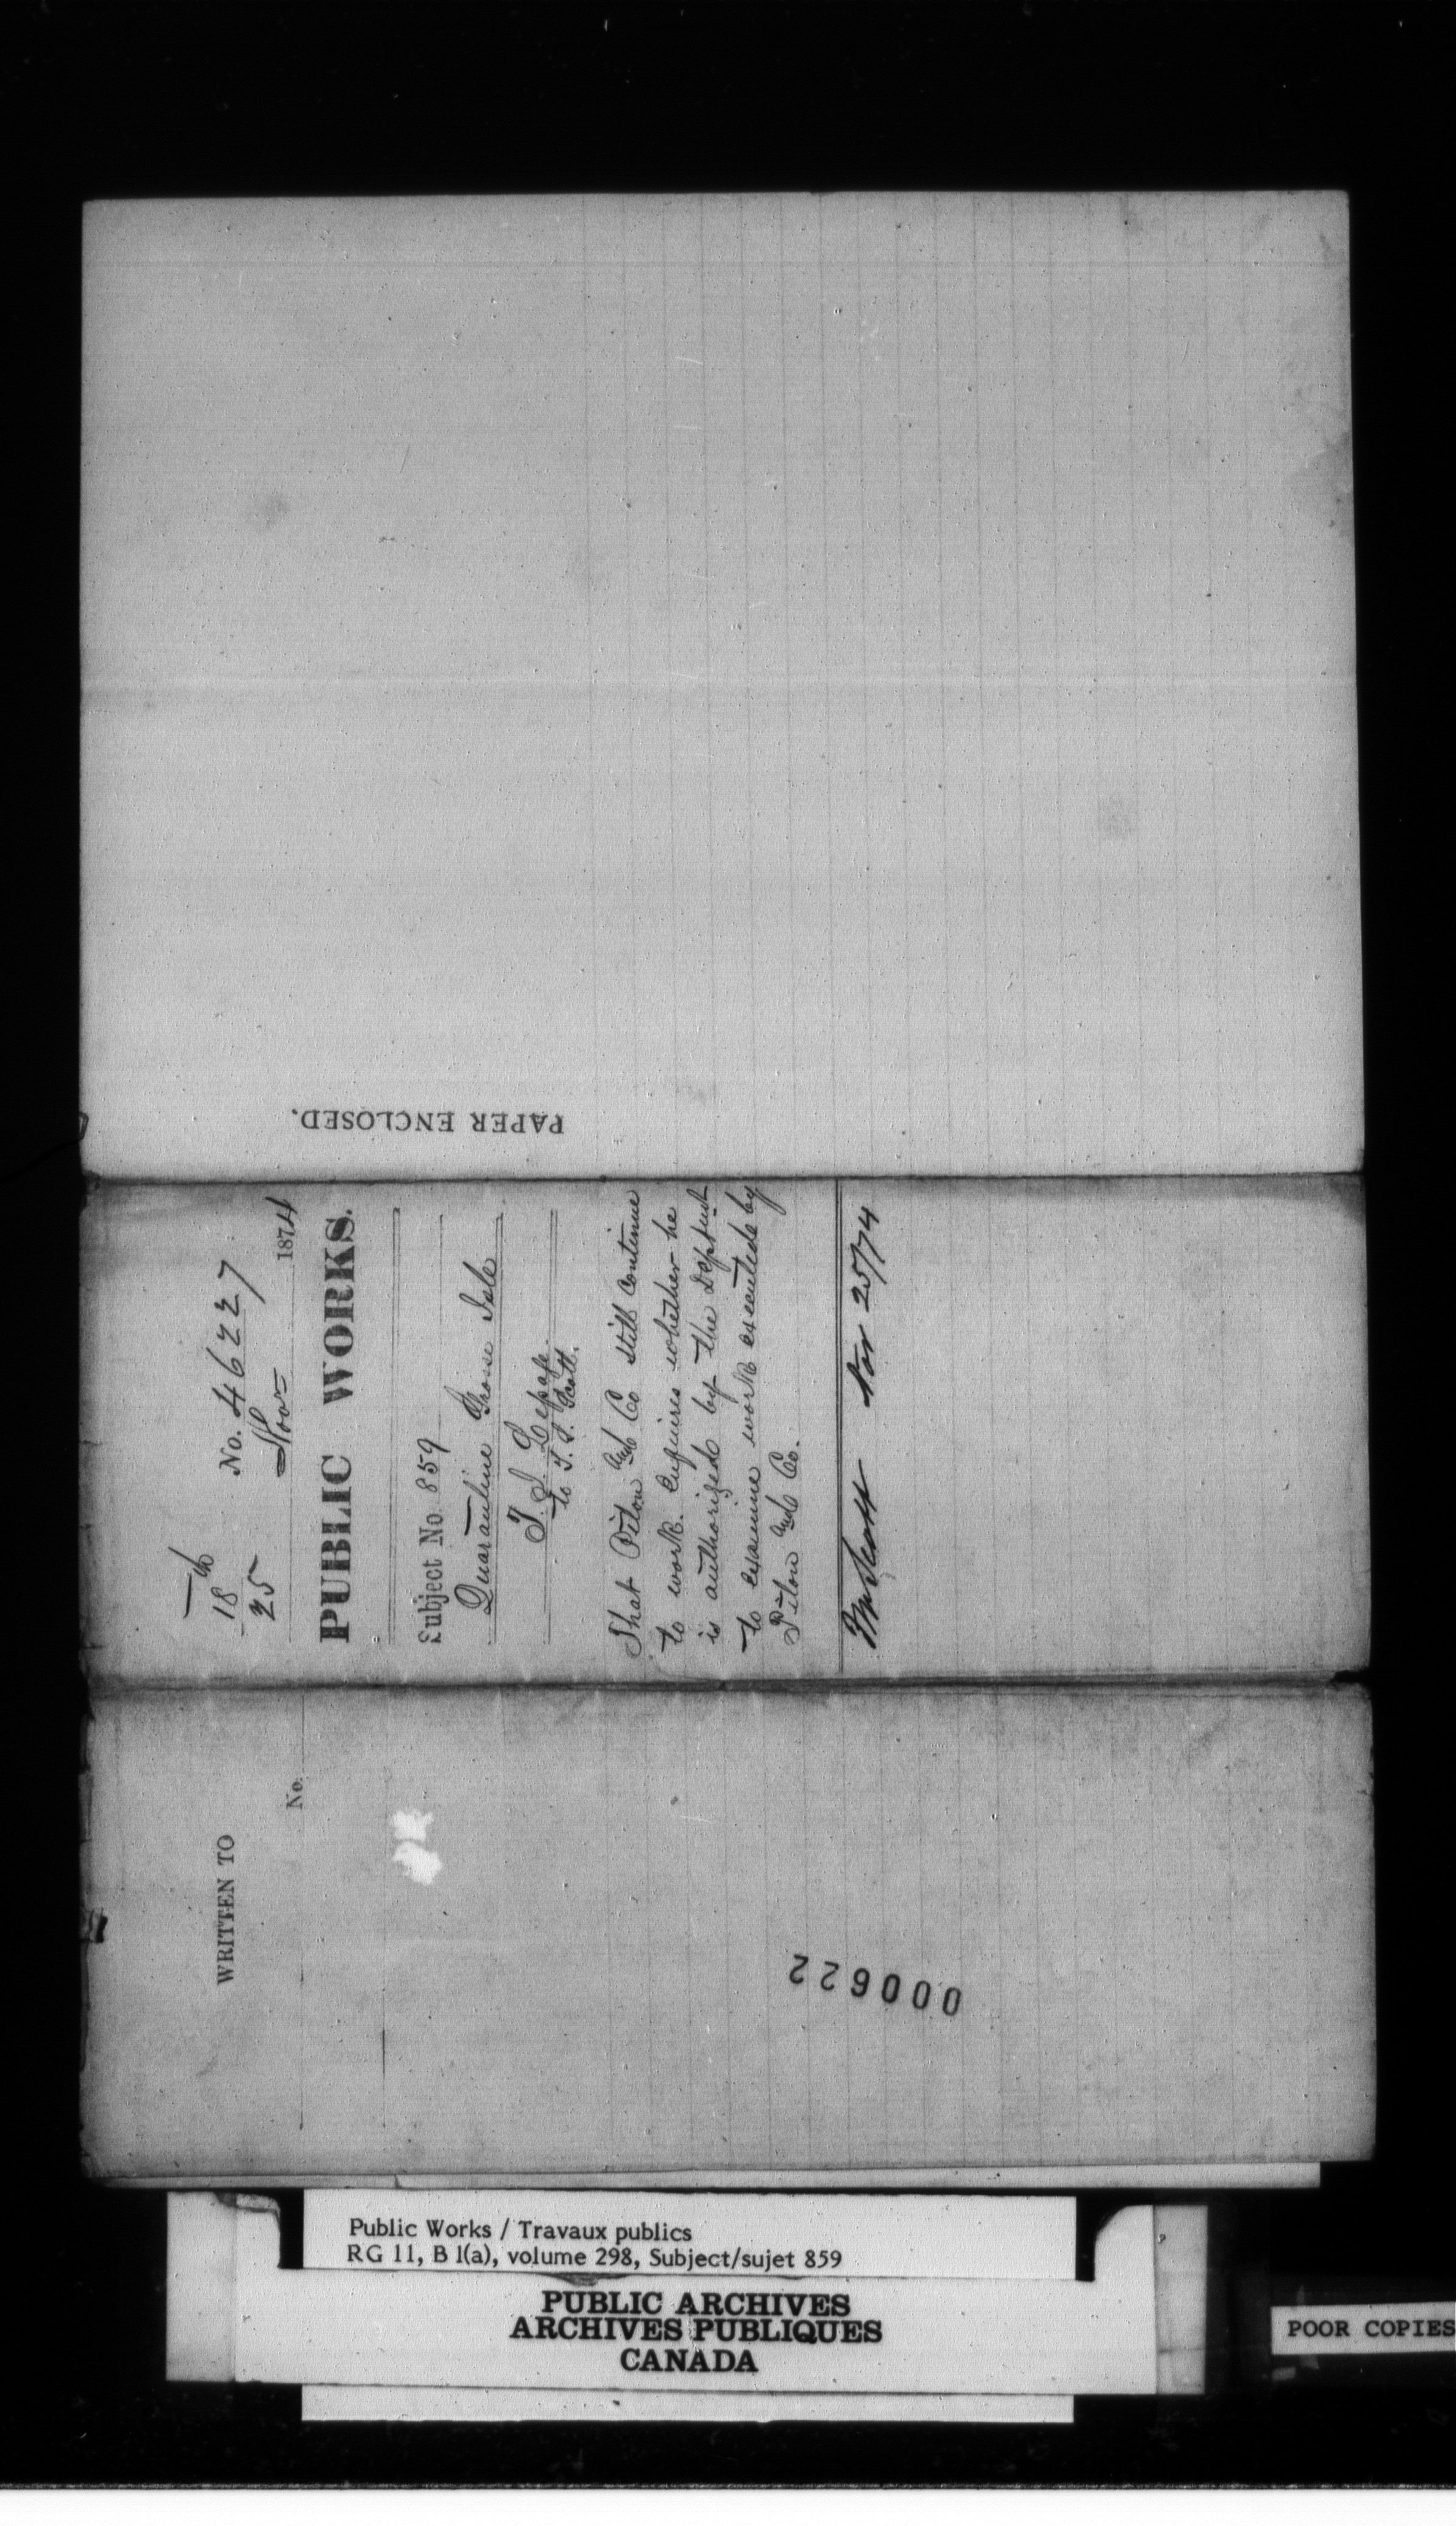 PAPER ENCLOSED.
18th No. 46227
25 Nov 1874
PUBLIC WORKS.
Subject No. 859
Quarantine Grosse Isle
T. J. Lepage
to T. S. Scott.
That Piton and Co still continue
to work. Enquires whether he
is authorized by the Deptmt
to examine work executed by
Piton and Co.
Mr Scott Nov 25/74
WRITTEN TO
No.
000622
Public Works / Travaux publics
RG 11, B 1(a), volume 298, Subject/sujet 859
PUBLIC ARCHIVES
ARCHIVES PUBLIQUES
CANADA
POOR COPIES